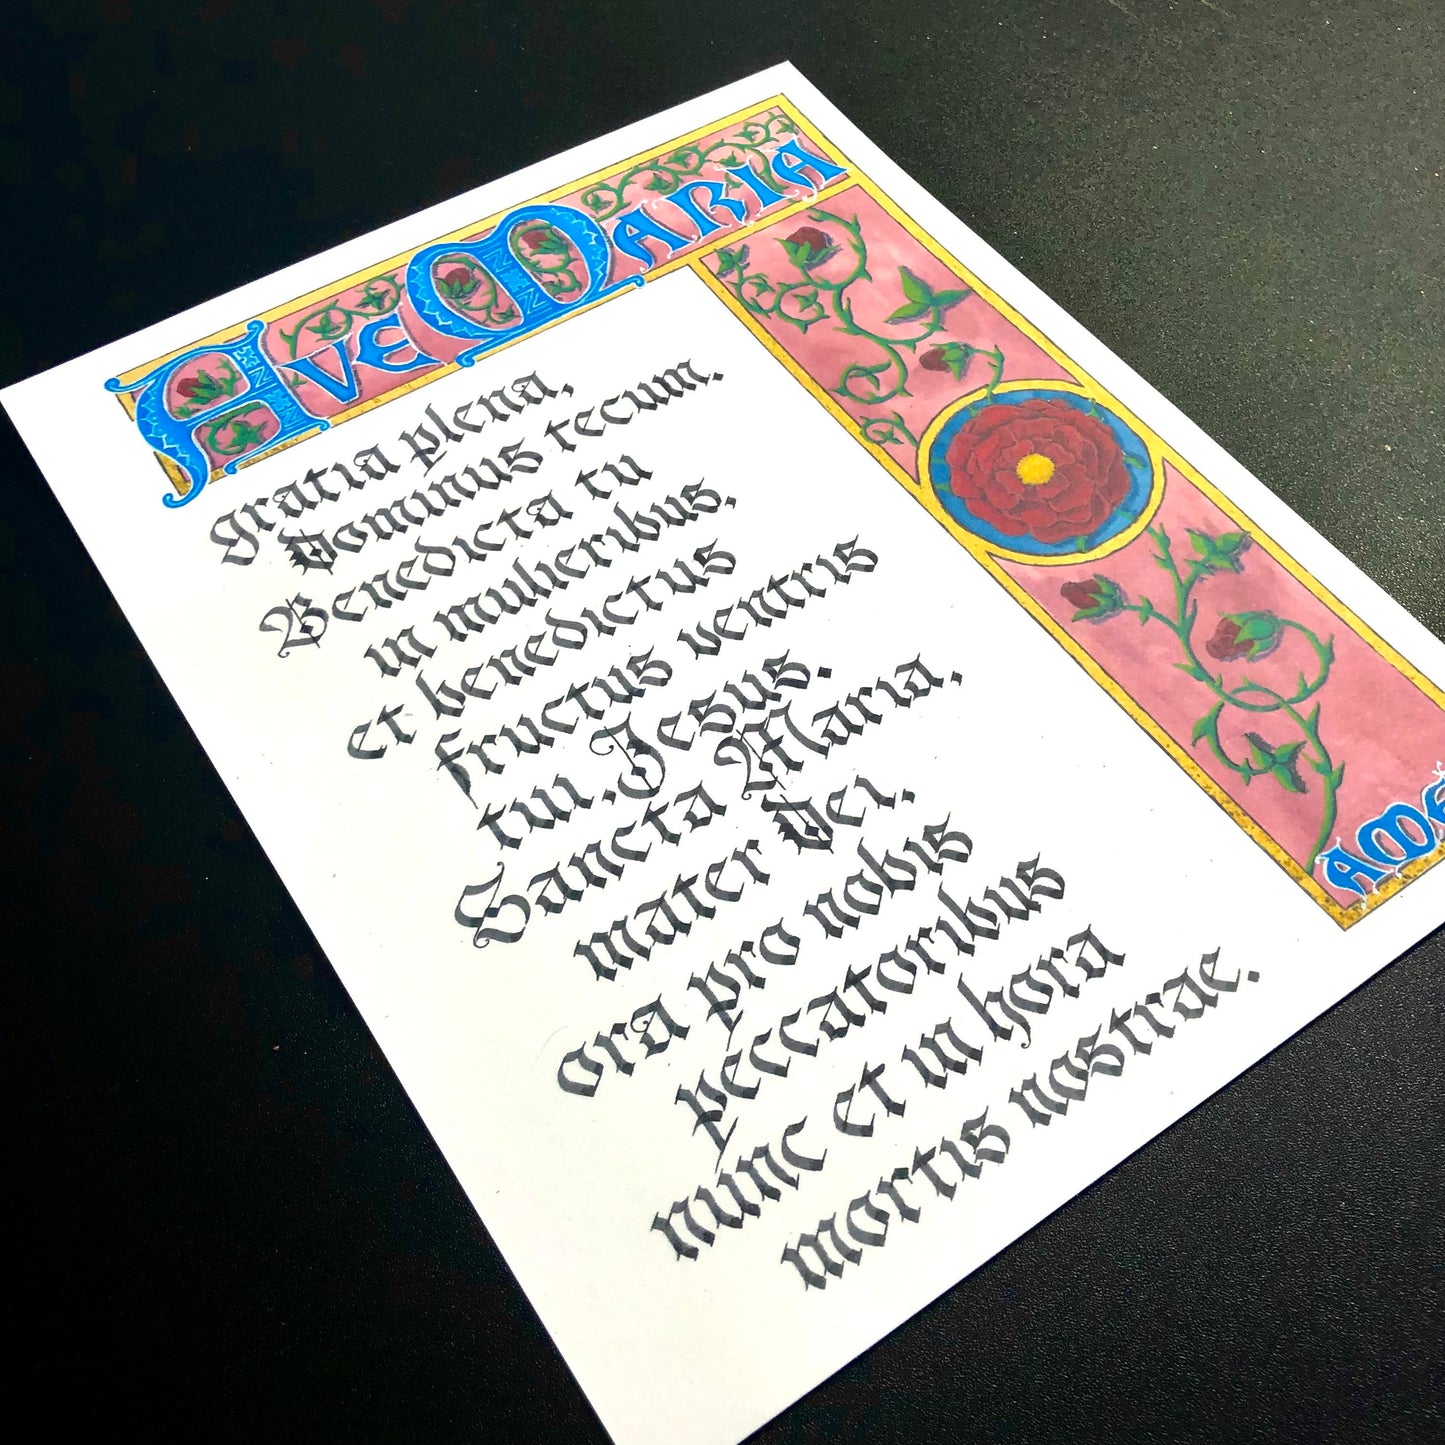 Ave Maria
gratia plena,
Dominus tecum.
Benedicta tu
in mulieribus,
et benedictus
fructus ventris
tui. Jesus.
Sancta Maria,
mater Dei,
ora pro nobis
peccatoribus
nunc et in hora
mortis nostrae.